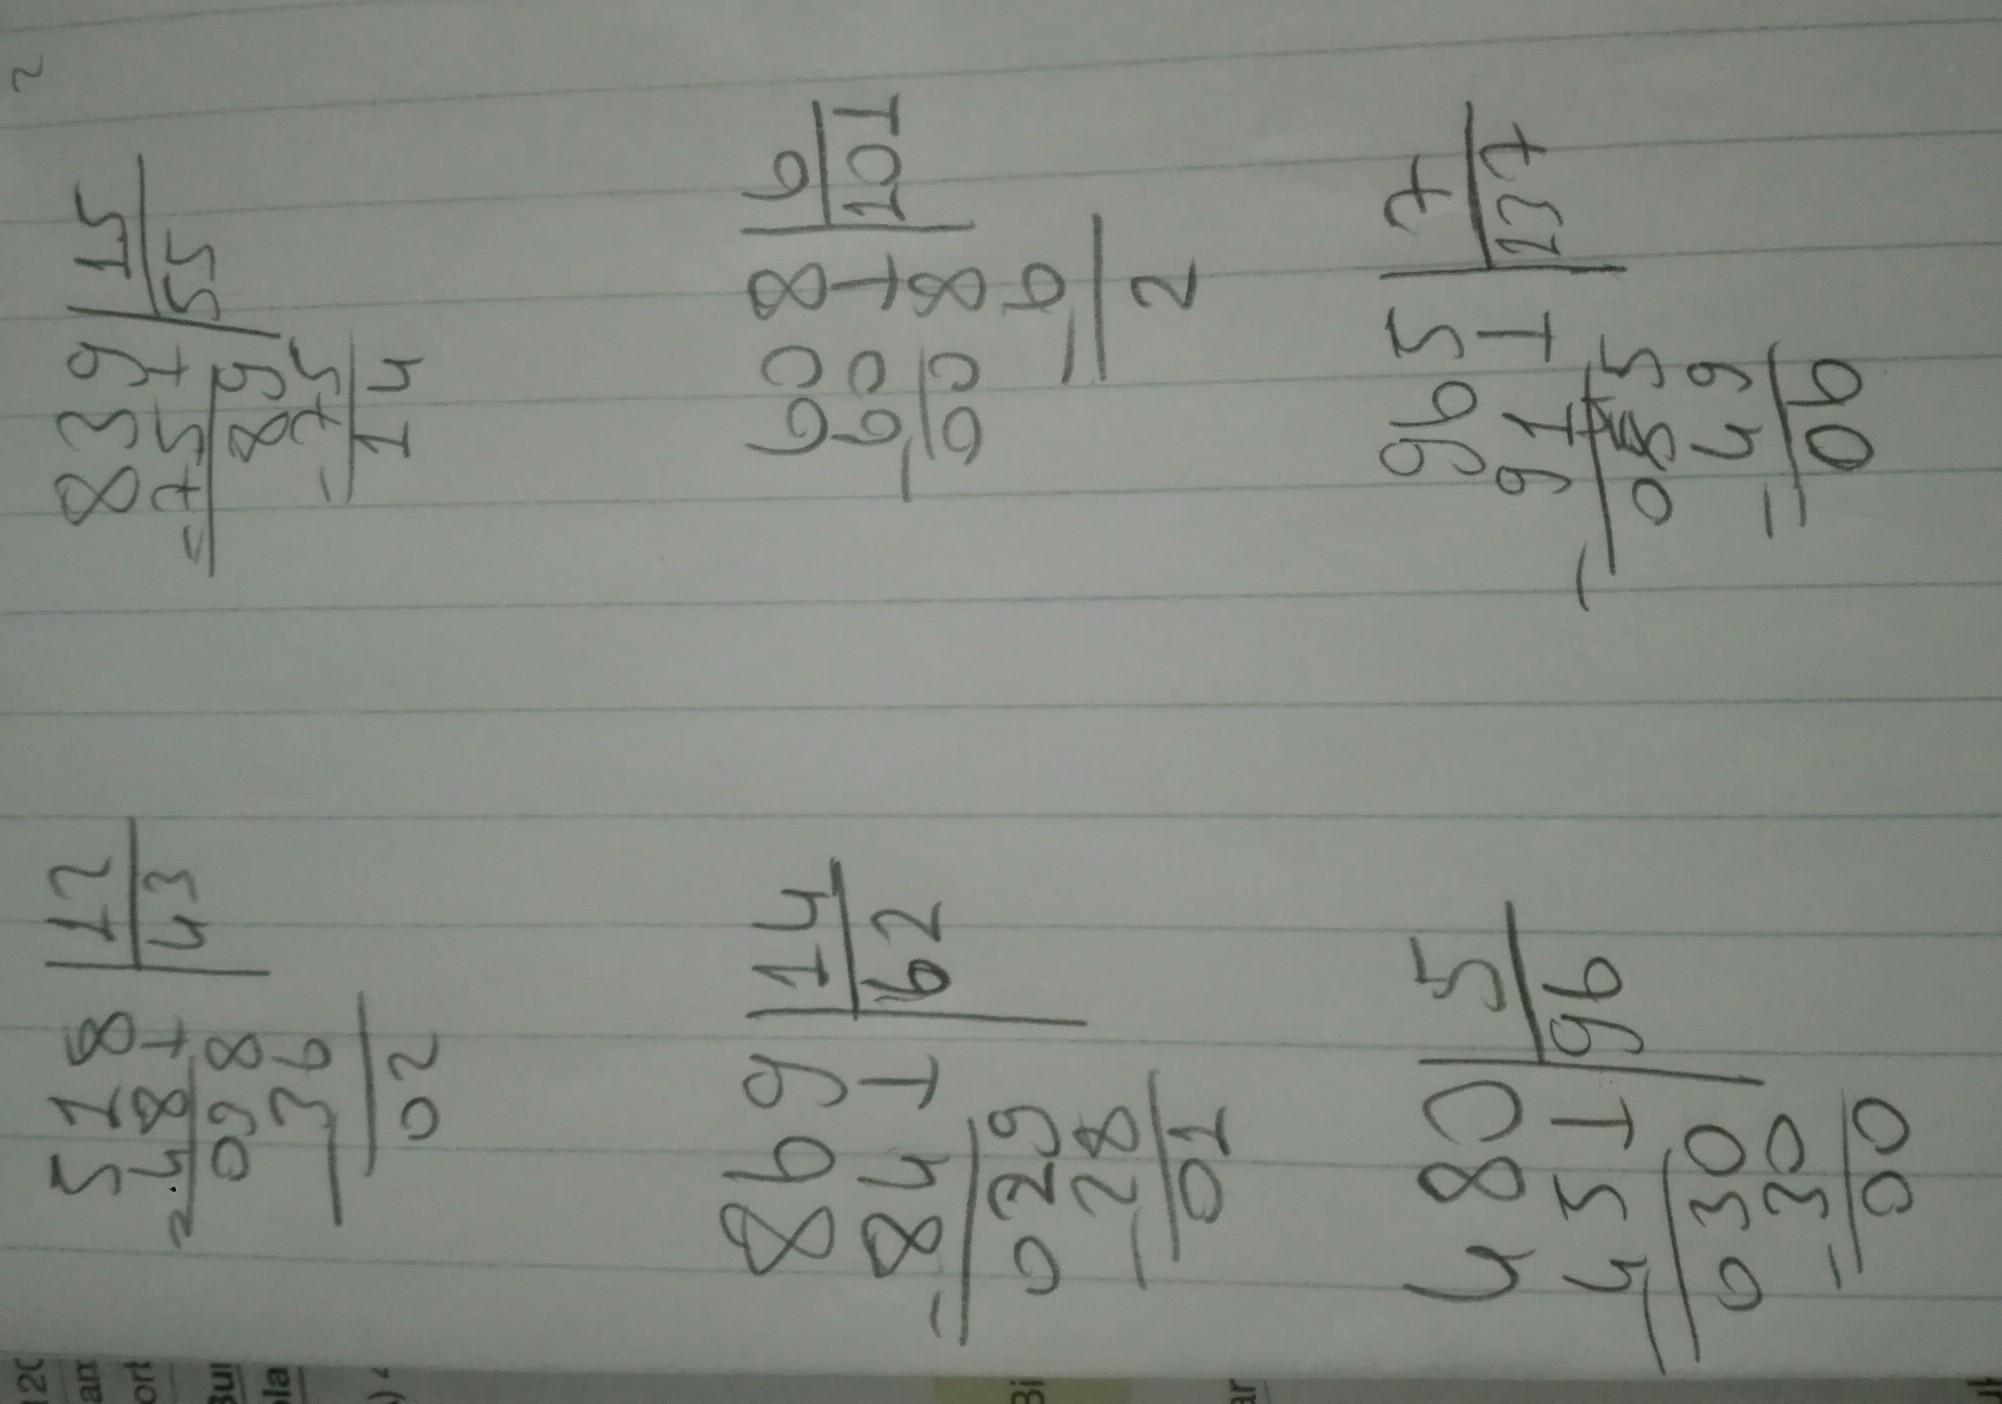 518 12
-48 43
098
-36
02
839 15
-75 55
89
-75
14
869 14
-84 62
029
-28
01
608 6
-60 101
008
-6
2
480 5
-45 96
030
-30
00
965 7
-91 137
055
-49
06